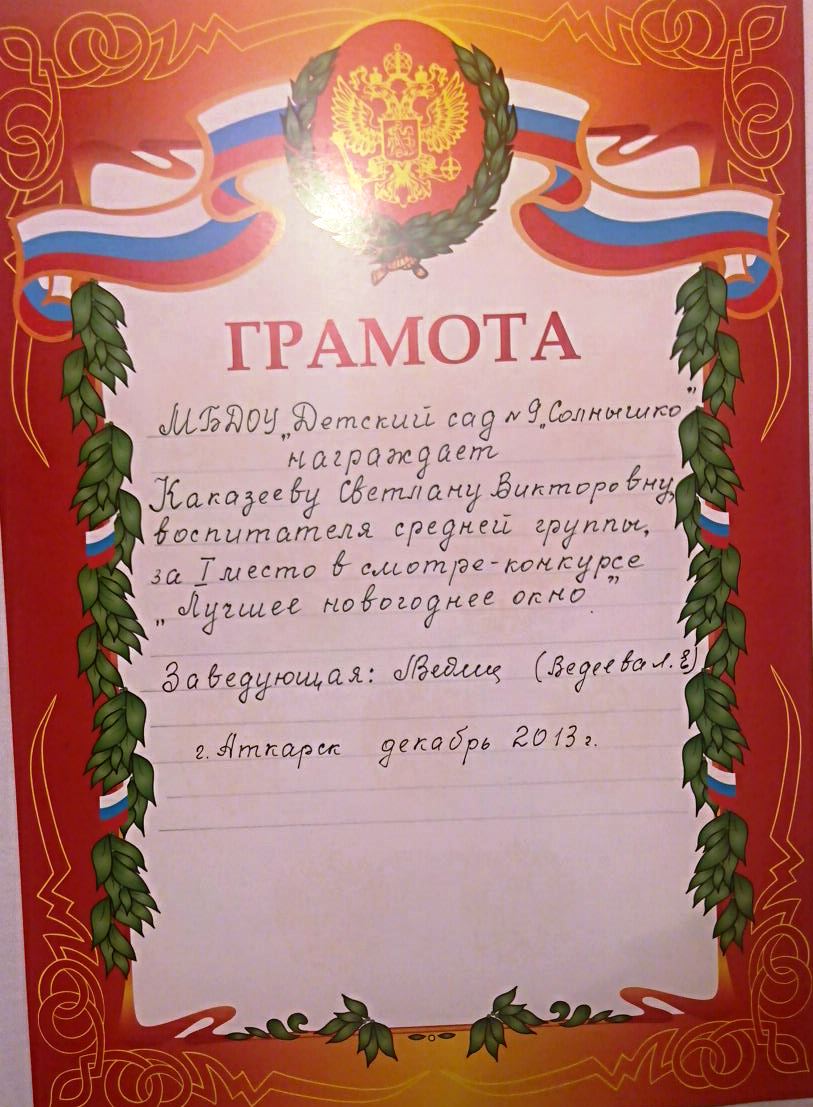 ГРАМОТА
МБДОУ „Детский сад №9 „Солнышко”
награждает
Каказееву Светлану Викторовну,
воспитателя средней группы,
за I место в смотре-конкурсе
„Лучшее новогоднее окно”.
Заведующая: (Ведеева Л.Г)
г. Аткарск декабрь 2013 г.